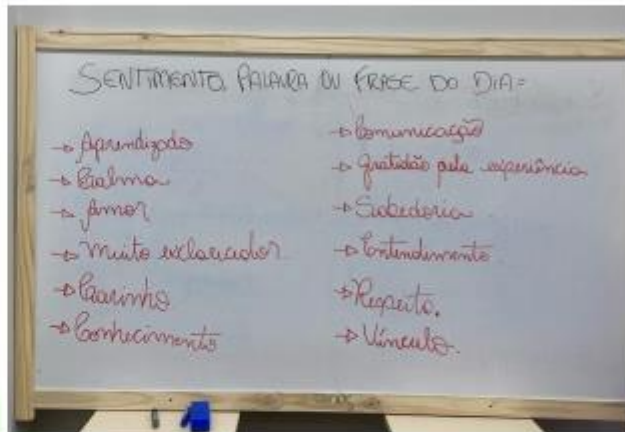 SENTIMENTO, PALAVRA OU FRASE DO DIA=
→ Aprendizado
→ Calma
→ Amor
→ Muito esclarecedor
→ Carinho
→ Conhecimento
→ Comunicação
→ Gratidão pela experiência
→ Sabedoria
→ Entendimento
→ Respeito.
→ Vínculo.